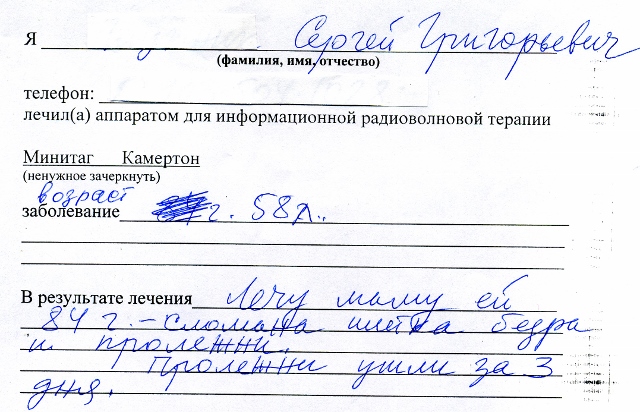 Я Сергей Григорьевич
(фамилия, имя, отчество)
телефон:
лечил(а) аппаратом для информационной радиоволновой терапии
Минитаг Камертон
(ненужное зачеркнуть)
возраст
заболевание г. 58 л..
В результате лечения Лечу маму ей
84 г. - сломана шейка бедра
и пролежни.
Пролежни ушли за 3
дня.